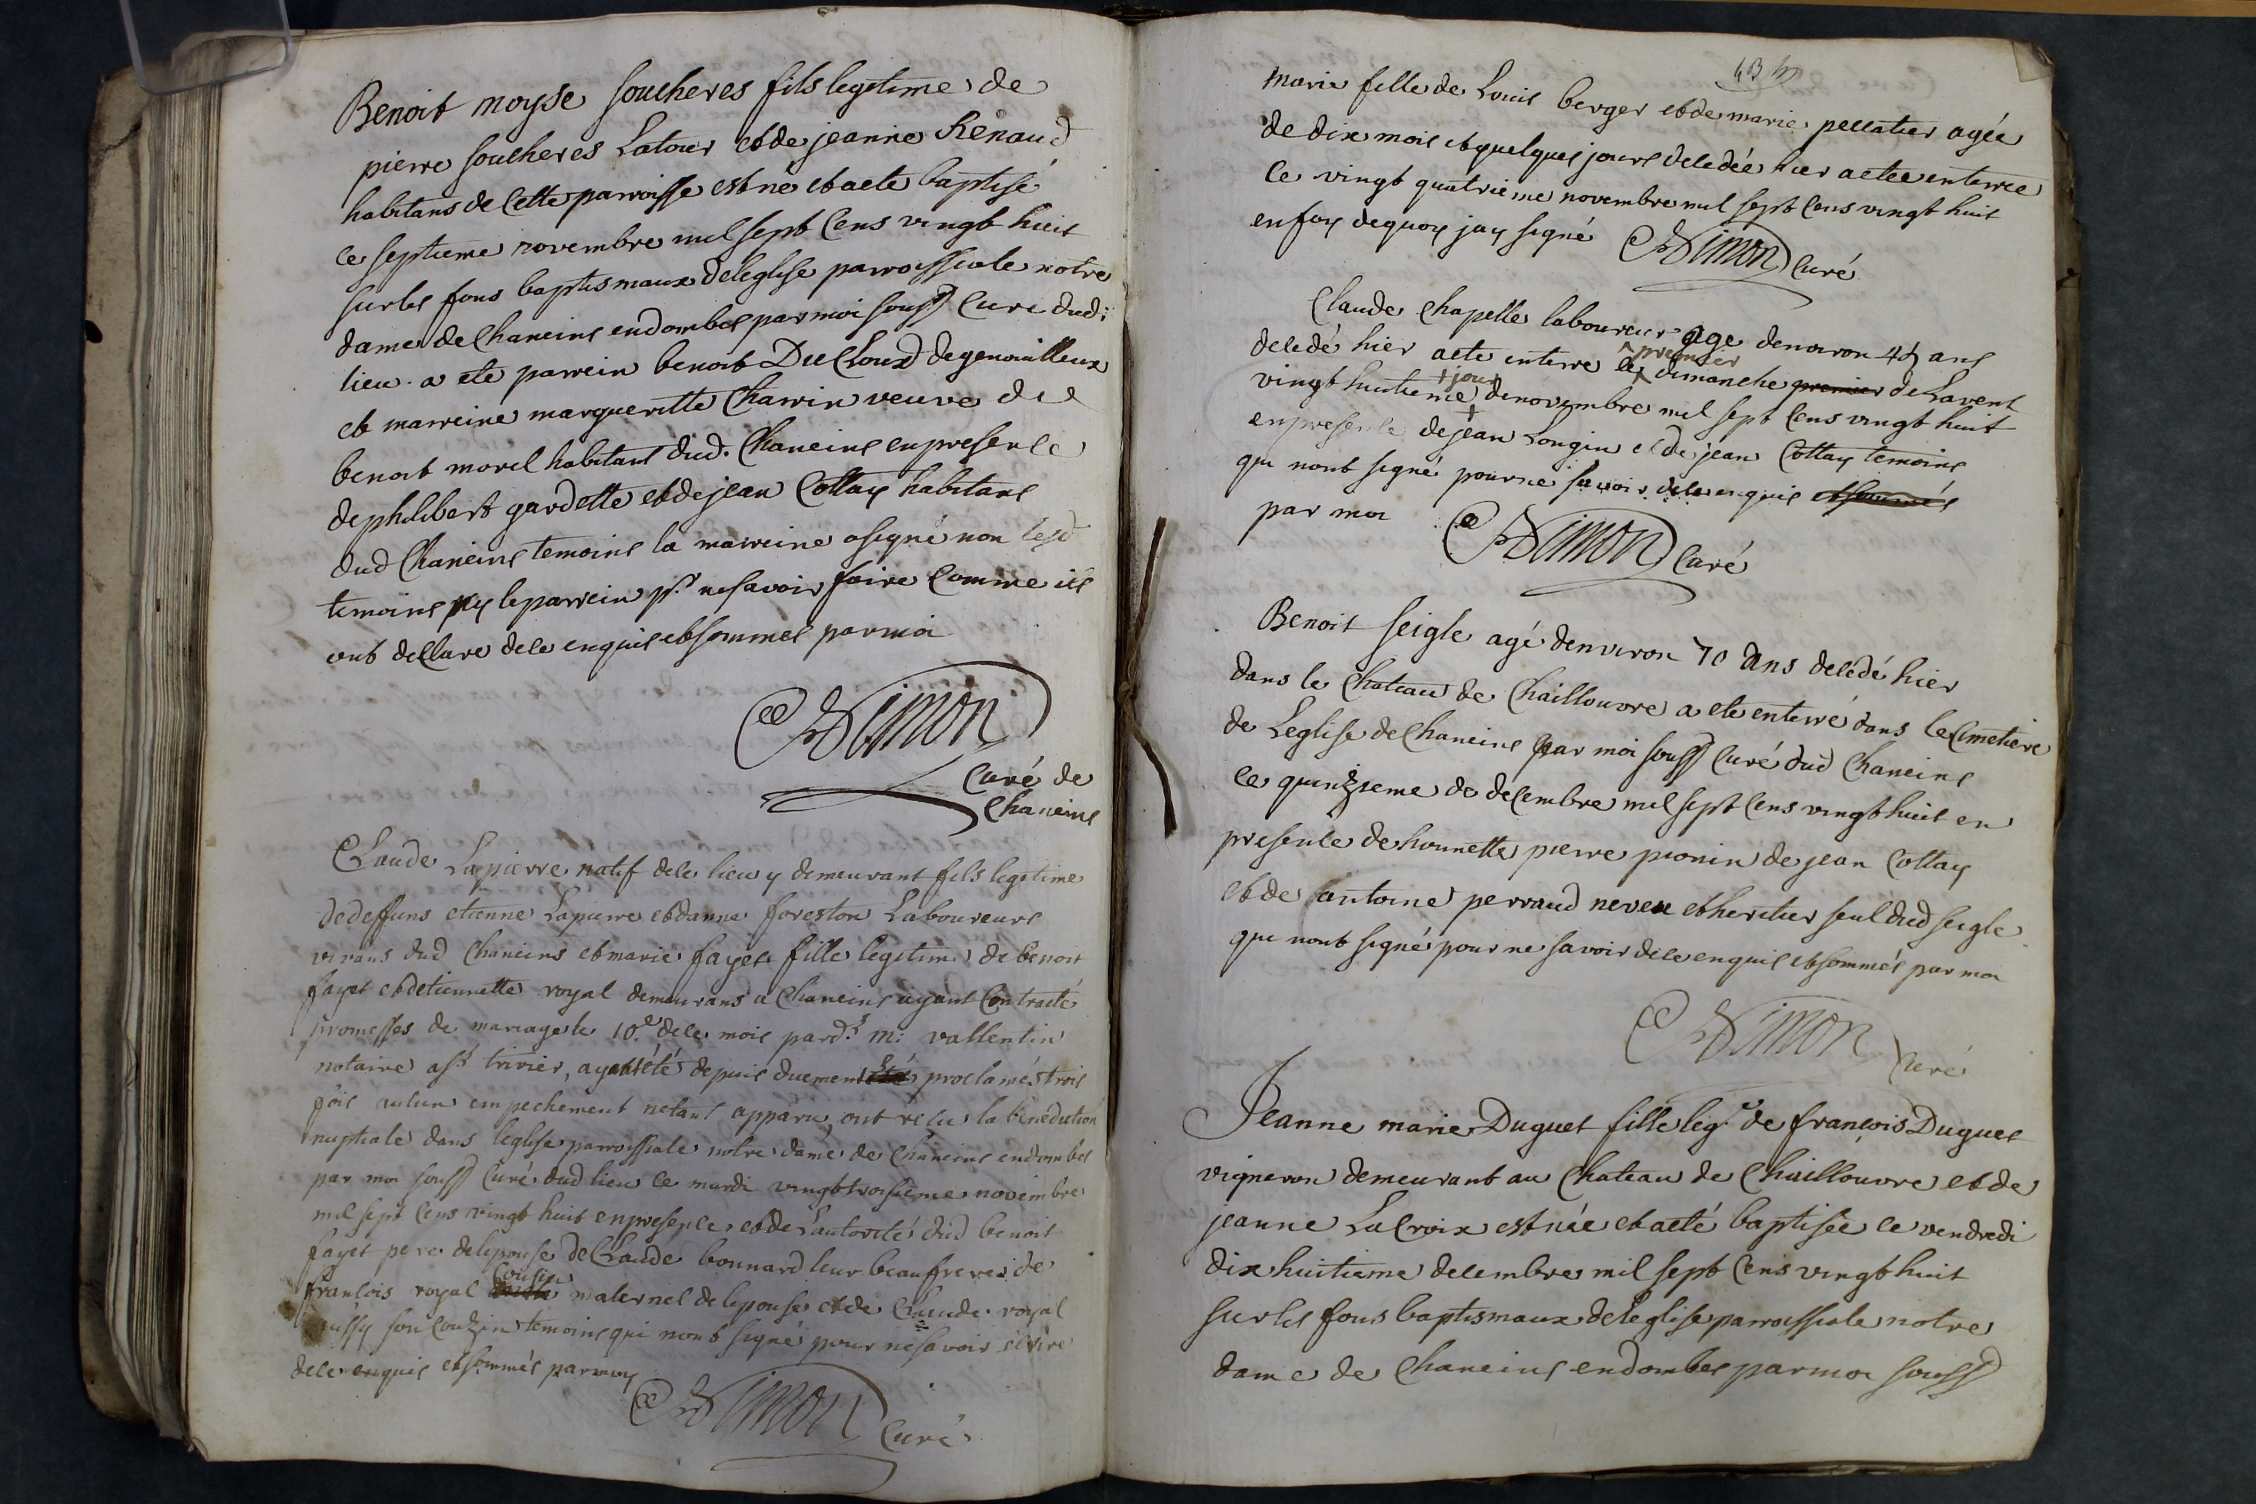 Benoit moyse soucheres fils legitime de
pierre soucheres Latour et de jeanne Renaud
habitans de cette parroisse est ne et a ete baptisé
ce septieme novembre mil sept cens vingt huit
sur les fons baptismaux de leglise parroissiale notre
dame de Chaneins en dombes par moi souss curé dud:
lieu. a ete parrein benoit Du Cloux de genouilleux
et marreine margueritte Charvin veuve de
benoit morel habitans dud. Chaneins en presence
de philibert gardette et de jean Cottay habitans
dud Chaneins temoins la marreine a signé non lesd
temoins ny le parrein pr ne savoir faire comme ils
ont declare de ce enquis et sommes par moi
Simon
Curé de
Chaneins
Claude Lapierre natif de ce lieu y demeurant fils legitime
de deffuns etienne Lapierre et danne foreston Laboureurs
vivans dud Chaneins et marie fayet fille legitime de benoit
fayet et detiennette royal demeurans a Chaneins ayant contracté
promesses de mariage le 10e de ce mois pard. m: vallentin
notaire a st trivier, ayant été depuis duement été proclamés trois
fois aucun empechement netant apparu, ont recu la benediction
nuptiale dans leglise parroissiale notre dame de Chaneins en dombes
par moi souss curé dud lieu ce mardi vingt troisieme novembre
mil sept cens vingt huit en presence et de Lautorité dud benoit
fayet pere de lepouse de Claude bonnard leur beaufrere de
francois royal cousin maternel de lepouse et de Claude royal
aussy son couzin temoins qui nont signé pour ne savoir ecrire
de ce enquis et sommés par moy
Simon Curé
marie fille de Louis berger et de marie pellatier agée
de dix mois et quelques jours decedée hier a etee enterree
ce vingt quatrieme novembre mil sept cens vingt huit
en foy de quoy jay signé Simon Curé
Claude Chapelle laboureur age denviron ans
premier
decedé hier a ete enterre le dimanche premier de Lavent
jour
vingt huitieme de novembre mil sept cens vingt huit
en presence de jean Longin et de jean Cottay temoins
qui nont signé pour ne savoir de ce enquis et sommés
par moi Simon Curé
Benoit seigle agé denviron 70 ans decedé hier
dans le Chateau de Chaillouvre a ete enterré dans le Cimetiere
de Leglise de Chaneins par moi souss curé dud Chaneins
ce quinzieme de decembre mil sept cens vingt huit en
presence de honnette pierre pionin de jean Cottay
et de antoine perraud neveu et heritier seul dud seigle
qui nont signé pour ne savoir de ce enquis et sommés par moi
Simon Curé
Jeanne marie Duguet fille leg. de francois Duguet
vigneron demeurant au Chateau de Chaillouvre et de
jeanne La Croix est née et a eté baptisée ce vendredi
dix huitieme decembre mil sept cens vingt huit
sur les fons baptismaux de leglise parroissiale notre
dame de Chaneins en dombes par moi souss